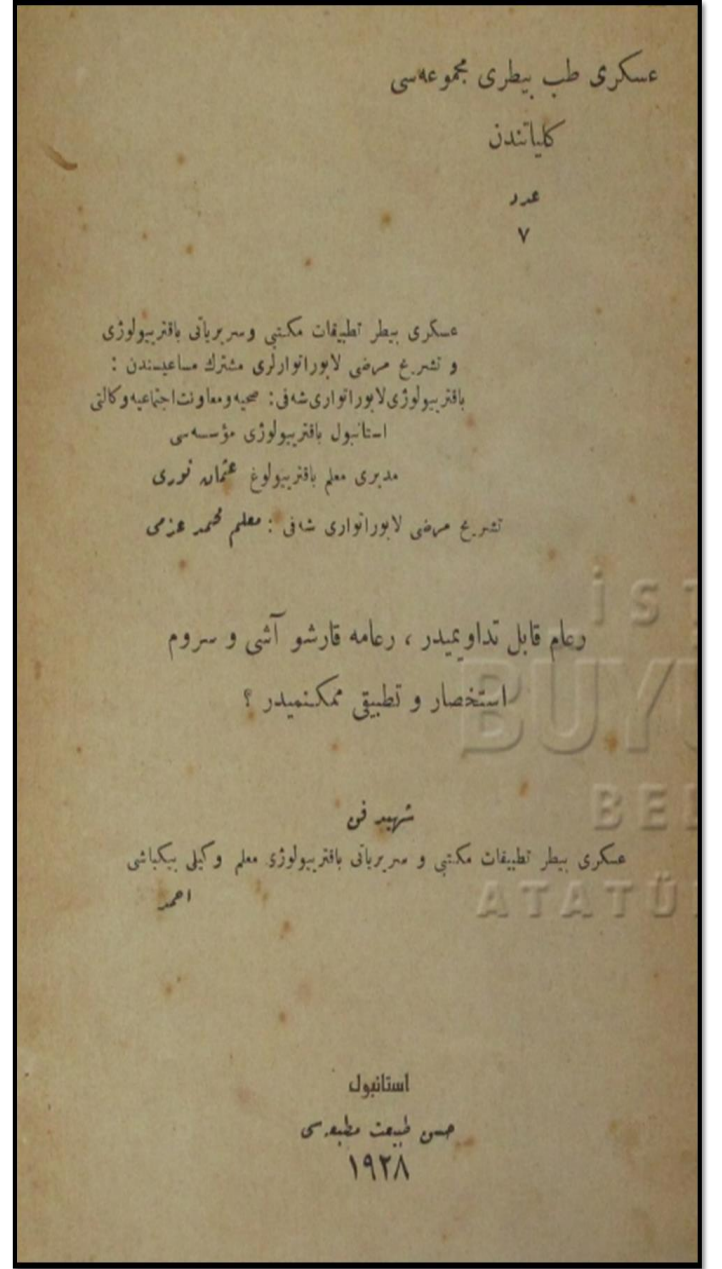 عسكری طب بیطری مجموعه‌سی
كلیاتندن
عدد
٧
عسكری بیطر تطبیقات مكتبی وسریریاتی باقتریولوژی
و تشریح مرضی لابوراتوارلری مشترك مساعیسندن :
باقتریولوژی لابوراتواری شفی : صحیه و معاونت اجتماعیه وكالتی
استانبول باقتریولوژی مؤسسه‌سی
مدیری معلم باقتریولوغ عثمان نوری
تشریح مرضی لابوراتواری شفی : معلم محمد عزمی
رعام قابل تداویمیدر ، رعامه قارشو آشی و سروم
استخصار و تطبیقی ممكنمیدر ؟
شهید فن
عسكری بیطر تطبیقات مكتبی و سریریاتی باقتریولوژی معلم وكیلی بیكباشی
احمد
استانبول
حسن طبیعت مطبعه‌سی
١٩٢٨
İST
BÜYÜ
BEL
ATATÜ